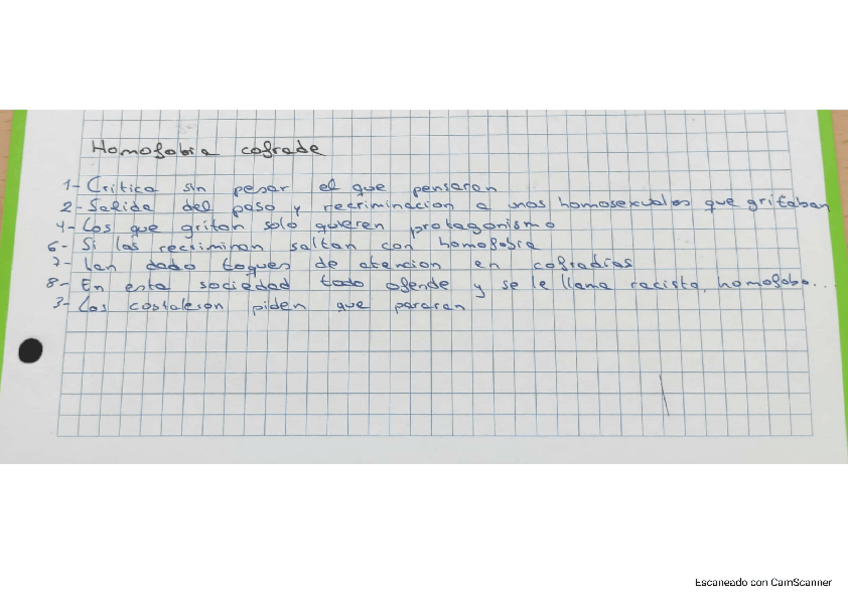 Homofobia cofrade
1- Critica sin pesar el que pensaran
2- Salida del paso y recriminacion a unos homosexuales que gritaban
4- Los que gritan solo quieren protagonismo
6- Si las recriminan saltan con homofobia
7- Lan dado toques de atencion en cofradias
8- En esta sociedad todo ofende y se le llama racista, homofobo...
3- Los costaleron piden que pararan
Escaneado con CamScanner